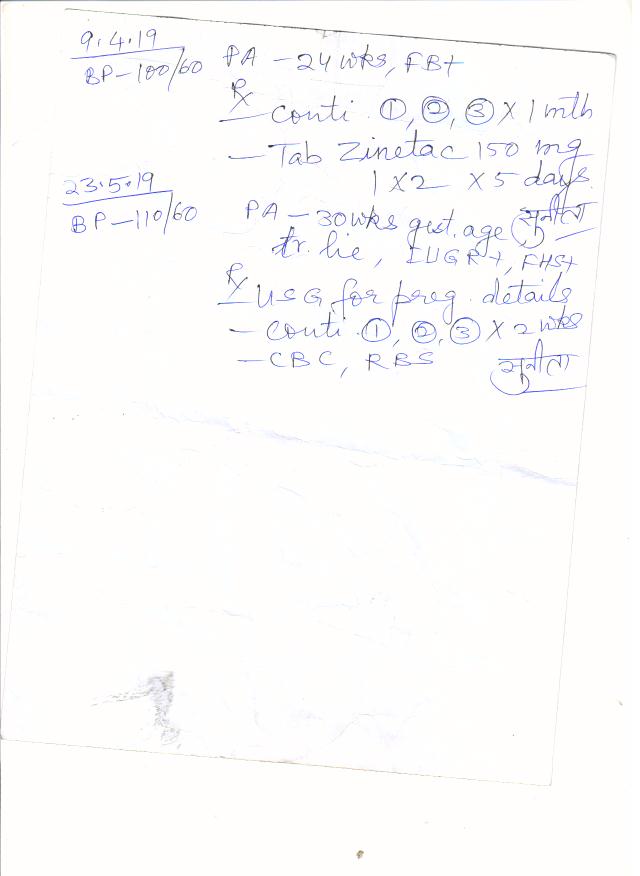 9.4.19
BP-100/60 PA - 24 wks, FB+
Rx
- conti. ①, ②, ③ X 1 mth
- Tab Zinetac 150 mg
1 X 2 X 5 days
23.5.19 सुनीता
BP-110/60 PA - 30 wks gest. age
tr. lie, IUGR+, FHS+
Rx
- USG for preg. details
- conti. ①, ②, ③ X 2 wks
- CBC, RBS सुनीता